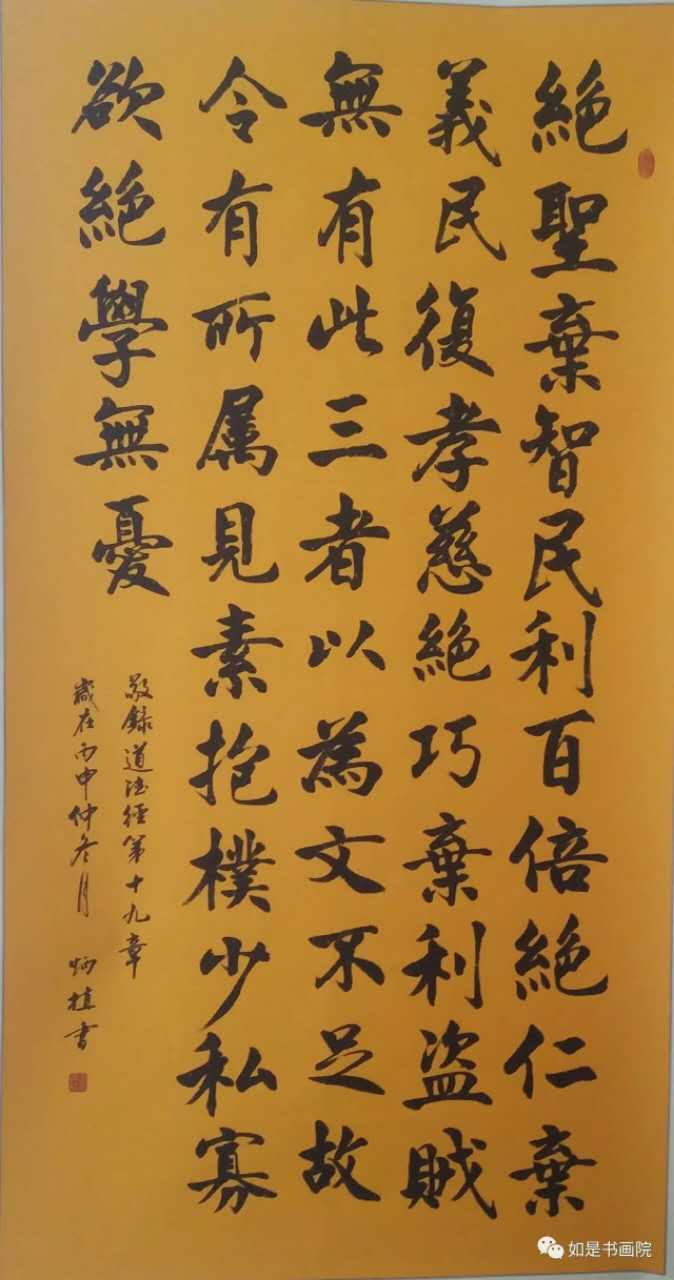 絶聖棄智民利百倍絶仁棄
義民復孝慈絶巧棄利盗賊
無有此三者以為文不足故
令有所属見素抱樸少私寡
欲絶學無憂
敬錄道德經第十九章
歲在丙申仲冬月 炳植書
如是书画院